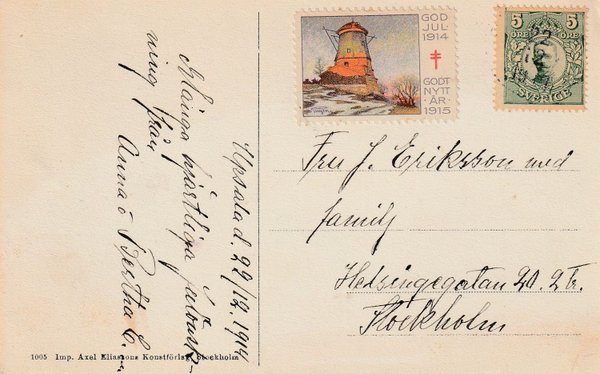 Upsala d. 22/12 1914
Många hjärtliga julönsk-
ning från
Anna o Bertha E.
GOD
JUL
1914
GODT
NYTT
ÅR
1915
5 5
ÖRE ÖRE
SVERIGE
Fru J. Eriksson med
familj
Helsingegatan 20. 2 tr.
Stockholm
1005 Imp. Axel Eliassons Konstförlag, Stockholm